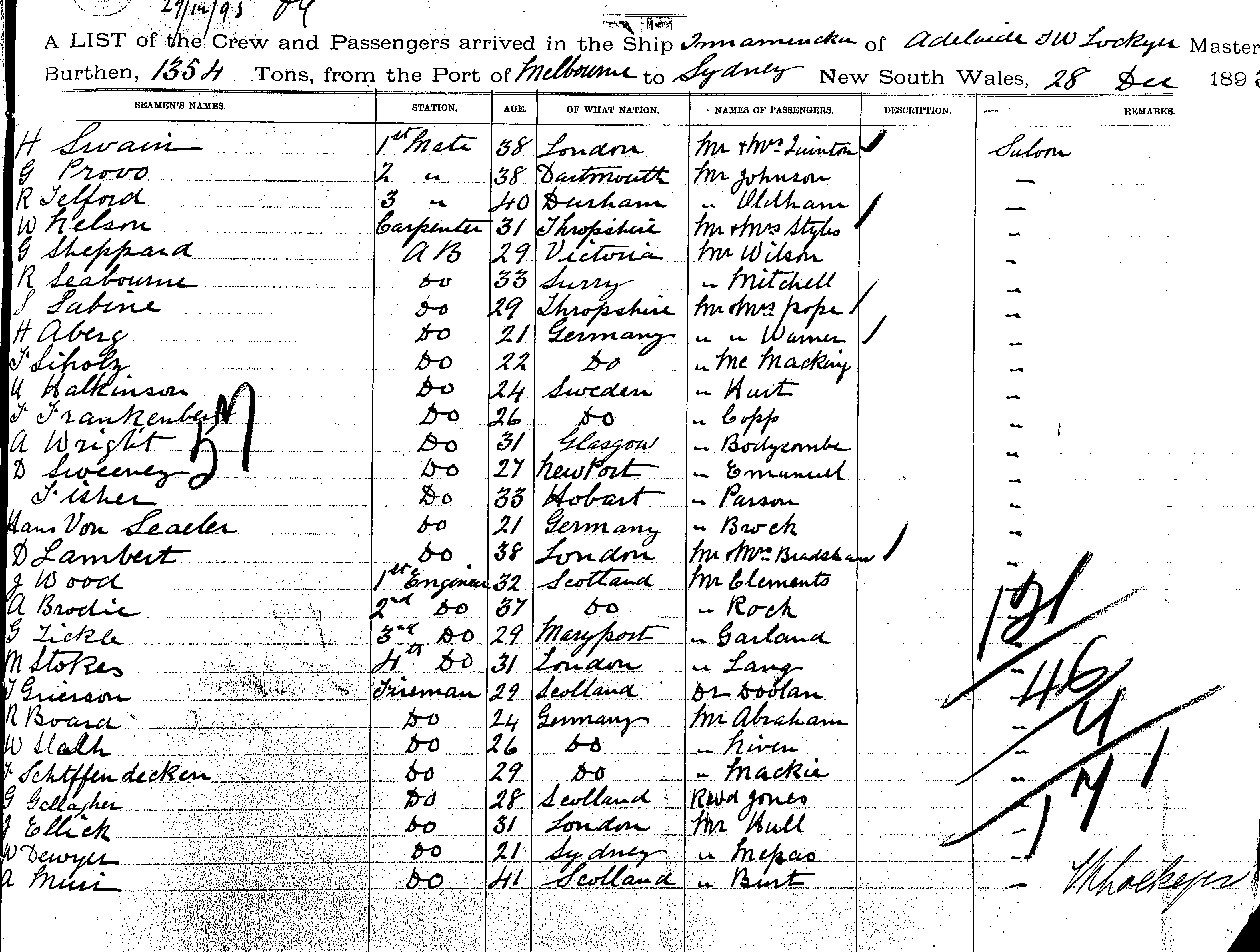 29/12/93
A LIST of the Crew and Passengers arrived in the Ship Innamincka of Adelaide J W Lockyer Master
Burthen, 1354 Tons, from the Port of Melbourne to Sydney New South Wales, 28 Dec 1893
SEAMEN'S NAMES. STATION. AGE. OF WHAT NATION. NAMES OF PASSENGERS. DESCRIPTION. REMARKS.
H Swain 1st Mate 38 London Mr & Mrs Quinton Saloon
G Provo 2 " 38 Dartmouth Mr Johnson "
R Telford 3 " 40 Durham " Oldham "
W Nelson Carpenter 31 Shropshire Mr & Mrs Styles "
G Sheppard A B 29 Victoria Mr Wilson "
R Seabourne Do 33 Surry " Mitchell "
S Sabine Do 29 Shropshire Mr & Mrs Pope "
H Aberg Do 21 Germany " " Warner "
F Siholz Do 22 Do " Mc Macking "
Halkinson Do 24 Sweden " Hart "
F Frankenberg Do 26 Do " Copp "
A Wright Do 31 Glasgow " Bodycombe "
D Sweeney Do 27 Newport " Emanuel "
Fisher Do 33 Hobart " Parson "
Hans Von Do 21 Germany " Brock "
D Lambert Do 38 London Mr & Mrs Bradshaw "
J Wood 1st Engineer 32 Scotland Mr Clements
A Brodie 2nd Do 37 Do " Rock
G Tickle 3rd Do 29 Maryport " Garland
M Stokes 4th Do 31 London " Lang "
J Grierson Fireman 29 Scotland Dr Doolan "
R Board Do 24 Germany Mr Abraham "
W Do 26 Do " Niven "
F Schiffendecken Do 29 Do " Mackie "
G Gallagher Do 28 Scotland Revd Jones "
J Ellick Do 31 London Mr Hull "
W Dewyer Do 21 Sydney " "
A Muir Do 41 Scotland " Burt "
57
121
46
4
171